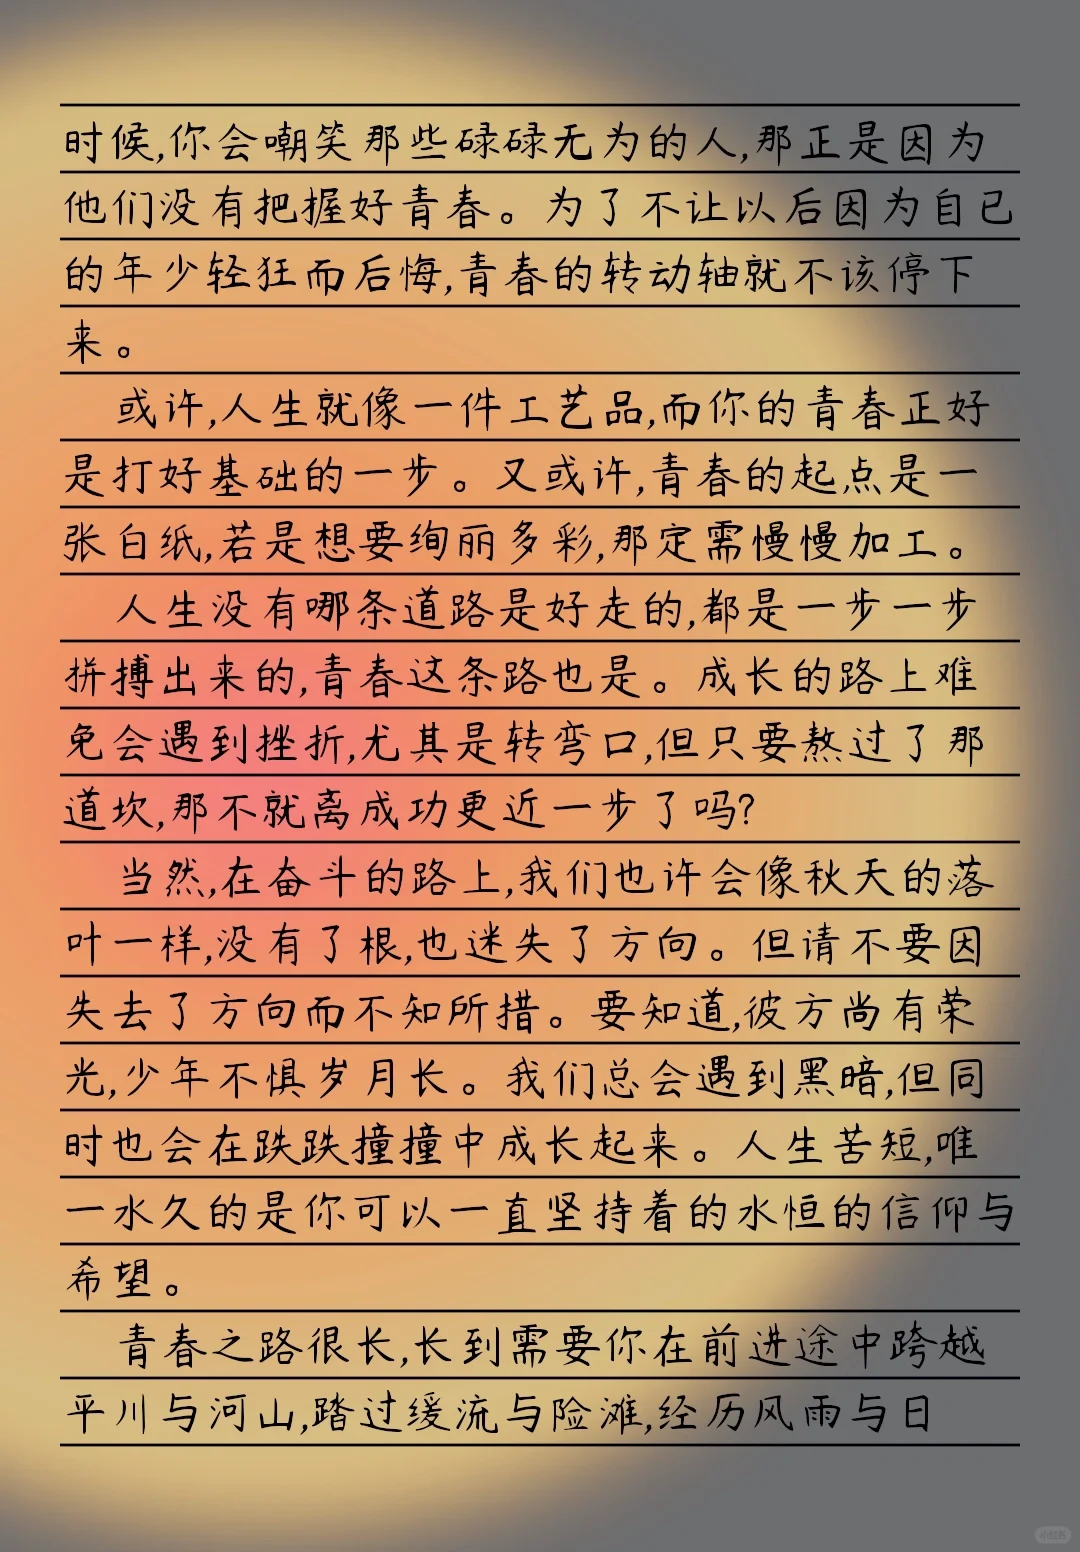 时候,你会嘲笑那些碌碌无为的人,那正是因为
他们没有把握好青春。为了不让以后因为自己
的年少轻狂而后悔,青春的转动轴就不该停下
来。
或许,人生就像一件工艺品,而你的青春正好
是打好基础的一步。又或许,青春的起点是一
张白纸,若是想要绚丽多彩,那定需慢慢加工。
人生没有哪条道路是好走的,都是一步一步
拼搏出来的,青春这条路也是。成长的路上难
免会遇到挫折,尤其是转弯口,但只要熬过了那
道坎,那不就离成功更近一步了吗?
当然,在奋斗的路上,我们也许会像秋天的落
叶一样,没有了根,也迷失了方向。但请不要因
失去了方向而不知所措。要知道,彼方尚有荣
光,少年不惧岁月长。我们总会遇到黑暗,但同
时也会在跌跌撞撞中成长起来。人生苦短,唯
一水久的是你可以一直坚持着的水恒的信仰与
希望。
青春之路很长,长到需要你在前进途中跨越
平川与河山,踏过缓流与险滩,经历风雨与日
小红书